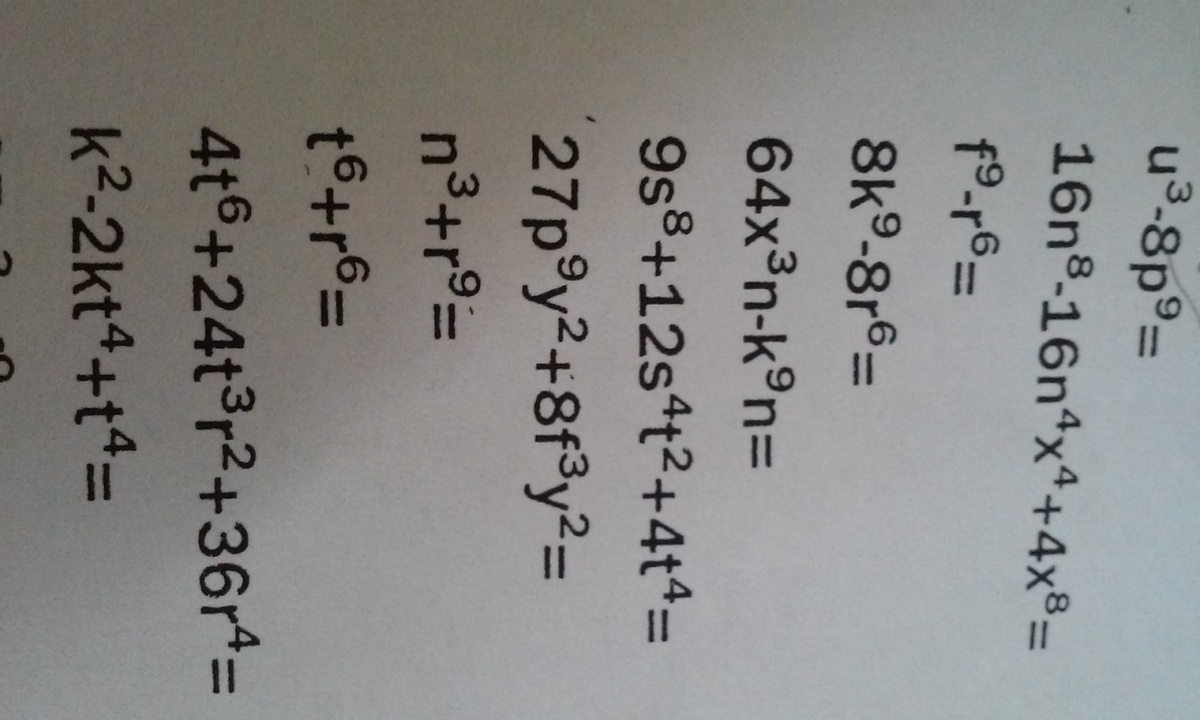 u³-8p⁹=
16n⁸-16n⁴x⁴+4x⁸=
f⁹-r⁶=
8k⁹-8r⁶=
64x³n-k⁹n=
9s⁸+12s⁴t²+4t⁴=
27p⁹y²+8f³y²=
n³+r⁹=
t⁶+r⁶=
4t⁶+24t³r²+36r⁴=
k²-2kt⁴+t⁴=